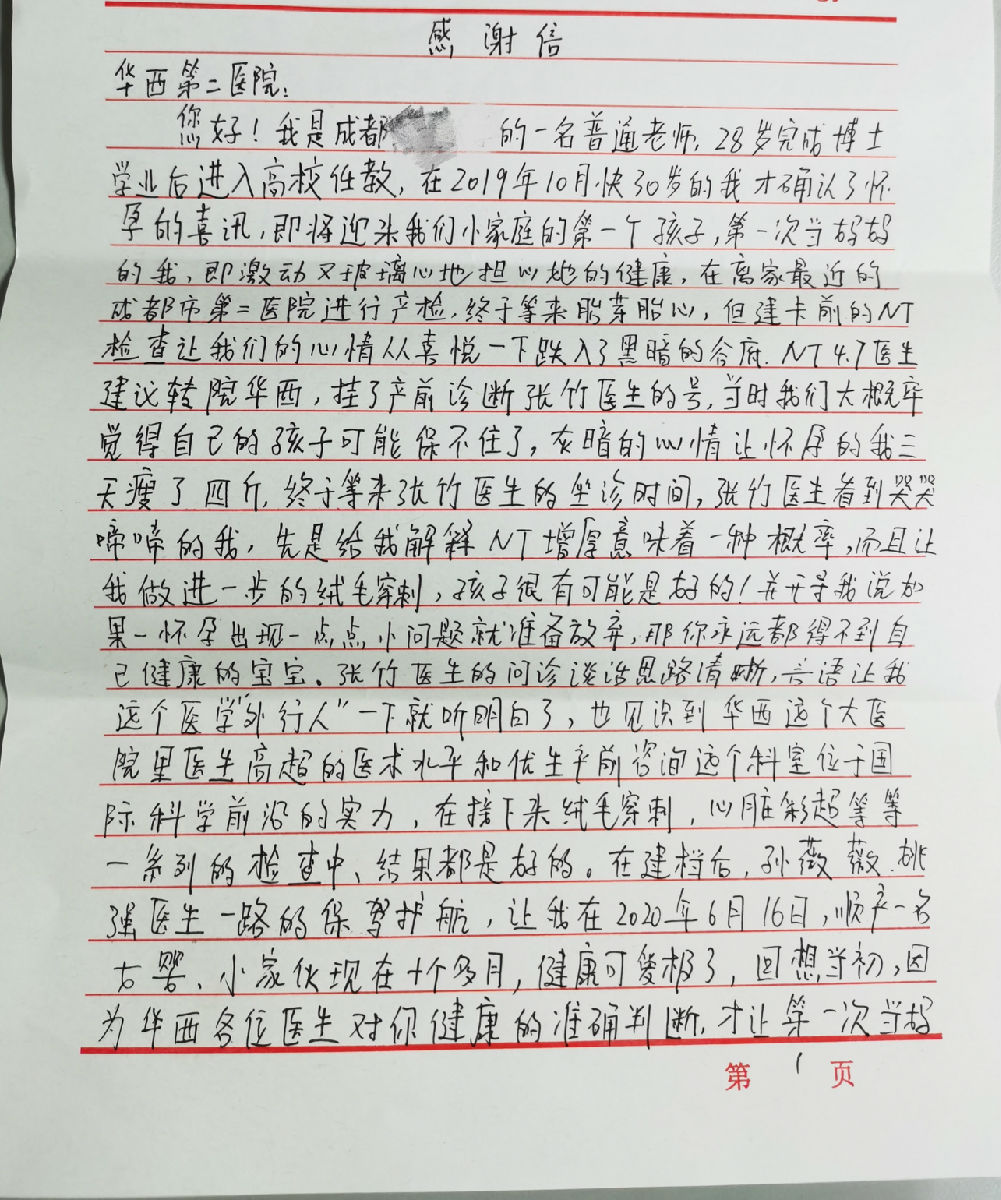 感谢信
华西第二医院:
您好!我是成都 的一名普通老师,28岁完成博士
学业后进入高校任教,在2019年10月快30岁的我才确认了怀
孕的喜讯,即将迎来我们小家庭的第一个孩子,第一次当妈妈
的我,即激动又玻璃心地担心她的健康,在离家最近的
成都市第二医院进行产检,终于等来胎芽胎心,但建卡前的NT
检查让我们的心情从喜悦一下跌入了黑暗的谷底.NT4.7医生
建议转院华西,挂了产前诊断张竹医生的号,当时我们大概率
觉得自己的孩子可能保不住了,灰暗的心情让怀孕的我三
天瘦了四斤,终于等来张竹医生的坐诊时间,张竹医生看到哭哭
啼啼的我,先是给我解释NT增厚意味着一种概率,而且让
我做进一步的绒毛穿刺,孩子很有可能是好的!并开导我说如
果一怀孕出现一点点小问题就准备放弃,那你永远都得不到自
己健康的宝宝。张竹医生的问诊谈话思路清晰,言语让我
这个医学"外行人"一下就听明白了,也见识到华西这个大医
院里医生高超的医术水平和优生产前咨询这个科室位于国
际科学前沿的实力,在接下来绒毛穿刺,心脏彩超等等
一系列的检查中、结果都是好的。在建档后,孙薇薇、姚
强医生一路的保驾护航,让我在2020年6月16日,顺产一名
女婴、小家伙现在十个多月,健康可爱极了,回想当初,因
为华西各位医生对你健康的准确判断,才让第一次当妈
第 1 页